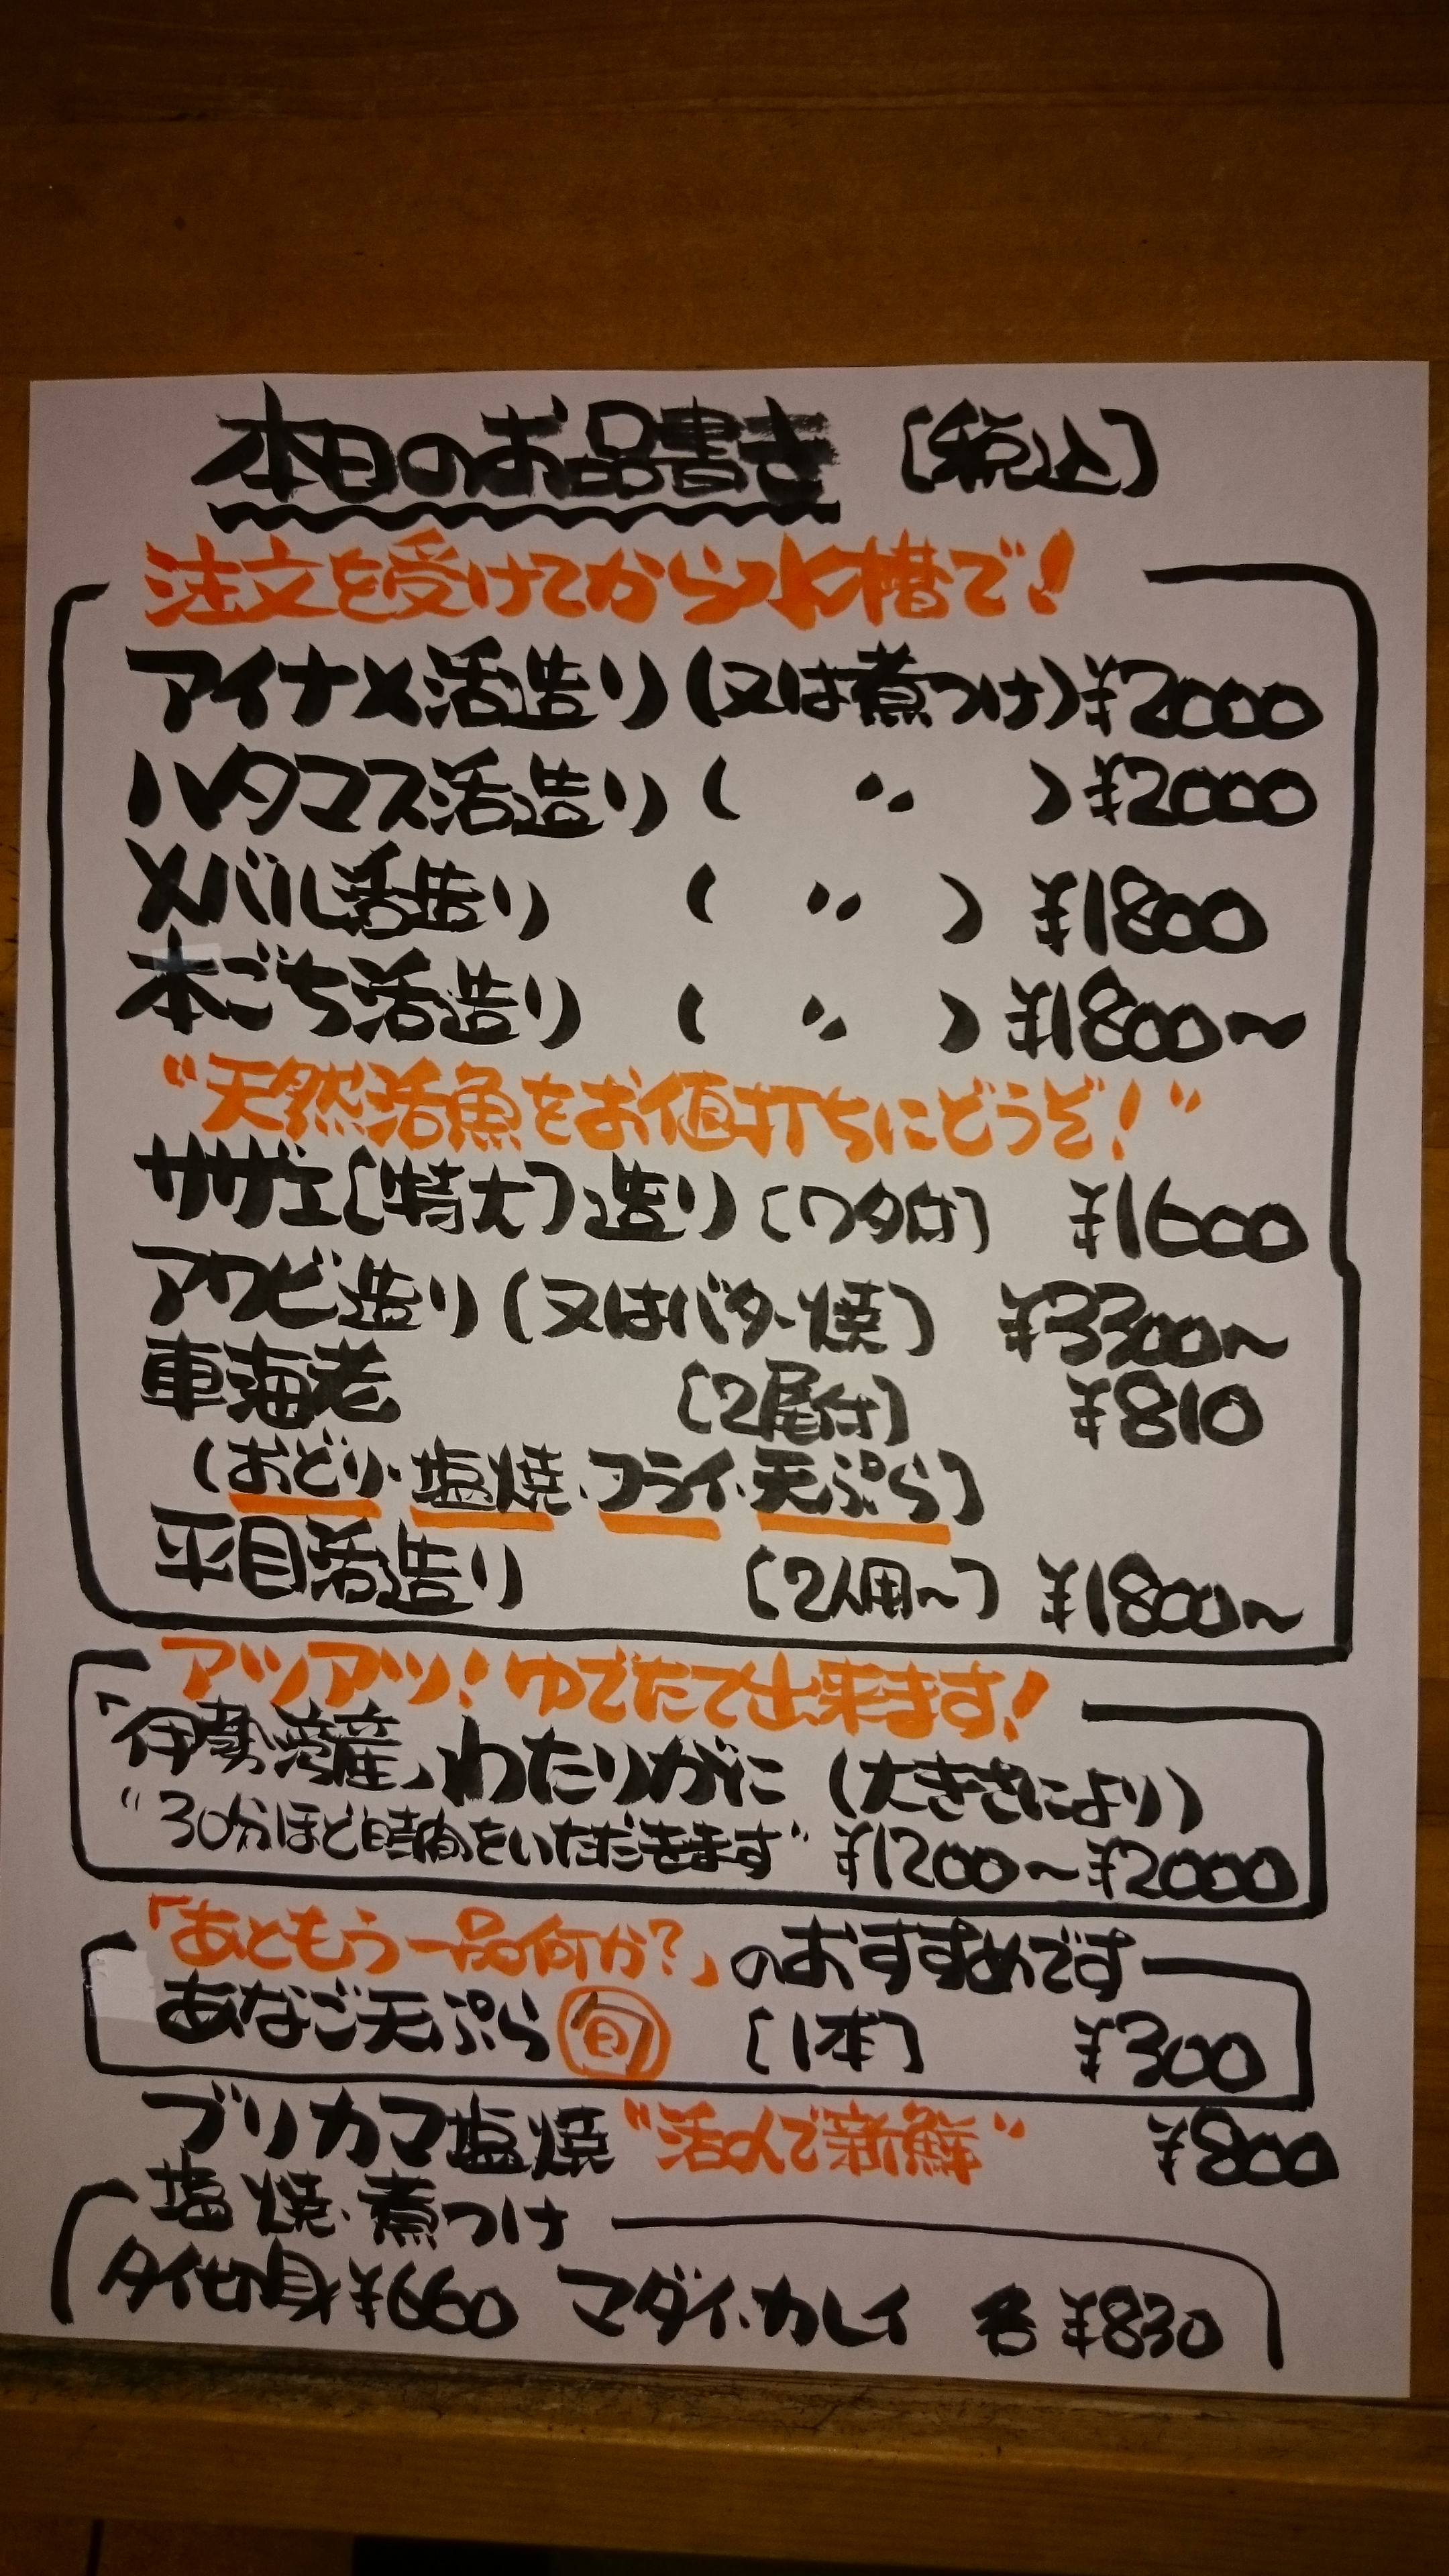 本日のお品書き [税込]
注文を受けてから水槽で!
アイナメ活造り(又は煮つけ)¥2000
ハタマス活造り( 〃 )¥2000
メバル活造り ( 〃 ) ¥1800
本ごち活造り ( 〃 ) ¥1800〜
"天然活魚をお値打ちにどうぞ!"
サザエ[特大]造り[ワタ付] ¥1600
アワビ造り(又はバター焼] ¥3300〜
車海老 [2尾付] ¥810
(おどり・塩焼・フライ・天ぷら]
平目活造り [2人用〜] ¥1800〜
アツアツ!ゆでたて出来ます!
「伊勢湾産」わたりがに (大きさにより)
"30分ほど時間をいただきます" ¥1200〜¥2000
「あともう一品何か?」のおすすめです
あなご天ぷら 旬 [1本] ¥300
ブリカマ塩焼 "活〆で新鮮" ¥800
塩焼・煮つけ
タイ切身¥660 マダイ・カレイ 各¥830